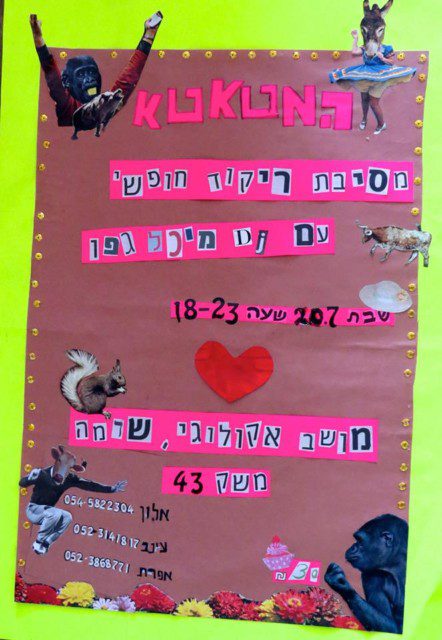 המטאטא
מסיבת ריקוד חופשי
עם Dj מיכל גפן
שבת 20.7 שעה 18-23
מושב אקולוגי, שרמה
משק 43
אלון 054-5822304
עינב 052-3141817
אפרת 052-3868771
30 ₪